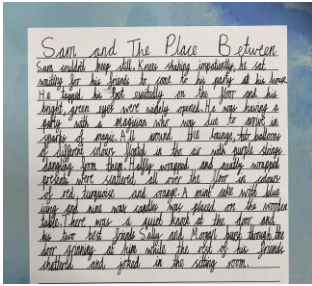 Sam and The Place Between
Sam couldn't keep still. Knees shaking impatiently, he sat
waiting for his friends to come to his party at his house.
He tapped his foot excitedly on the floor and his
bright, green eyes were widely opened. He was having a
party with a magician who was due to arrive in
sparks of magic. All around the lounge, ten balloons
of different colours floated in the air with purple strings
dangling from them. Halfly wrapped and neatly wrapped
presents were scattered over the floor in colours
of red, turquoise and orange. A mint cake with blue
icing and nine wax candles was placed on the wooden
table. There was a quiet knock at the door and
his two best friends Sally and Morgan burst through the
door grinning at him while the rest of his friends
chattered and joked in the sitting room.